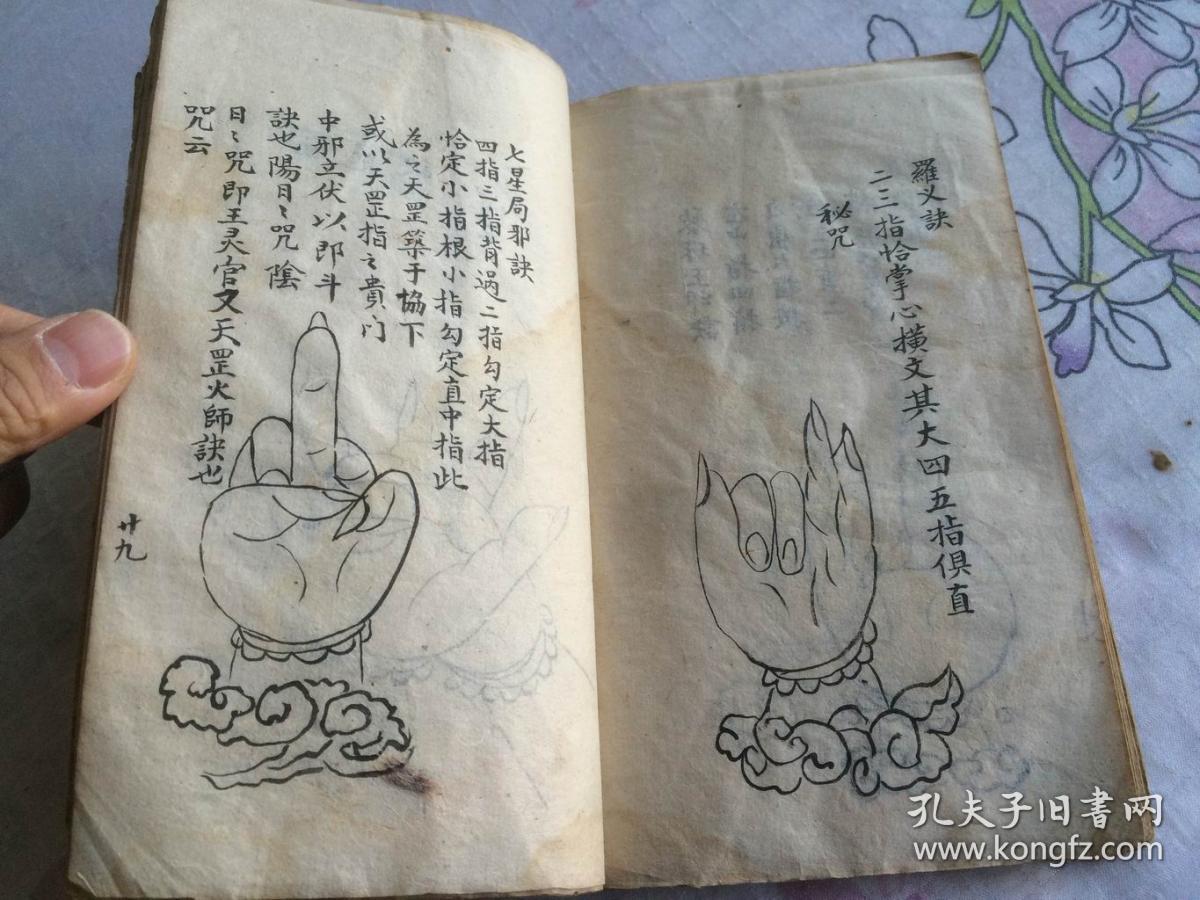 羅义訣
二三指恰掌心橫文其大四五指俱直
秘咒
七星局邪訣
四指三指背過二指勾定大指
恰定小指根小指勾定直中指此
為之天罡築于協下
或以天罡指之貴门
中邪立伏以即斗
訣也陽日〻咒陰
日〻咒即王灵官又天罡火師訣也
咒云
廿九
孔夫子旧書网
www.kongfz.com